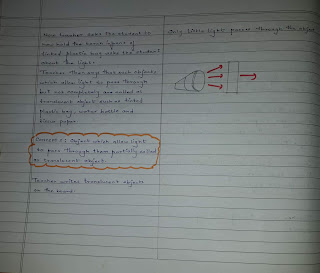 Now teacher asks the student to
now hold the torch infront of
tinted plastic bag asks the student
about the light.
Teacher then says that such objects
which allow light to pass through
but not completely are called as
translucent object such as tinted
plastic bag, water bottle and
tissue paper.
Concept : Object which allow light
to pass through them partially called
as translucent object.
Teacher writes translucent objects
on the board.
little light passes through the object